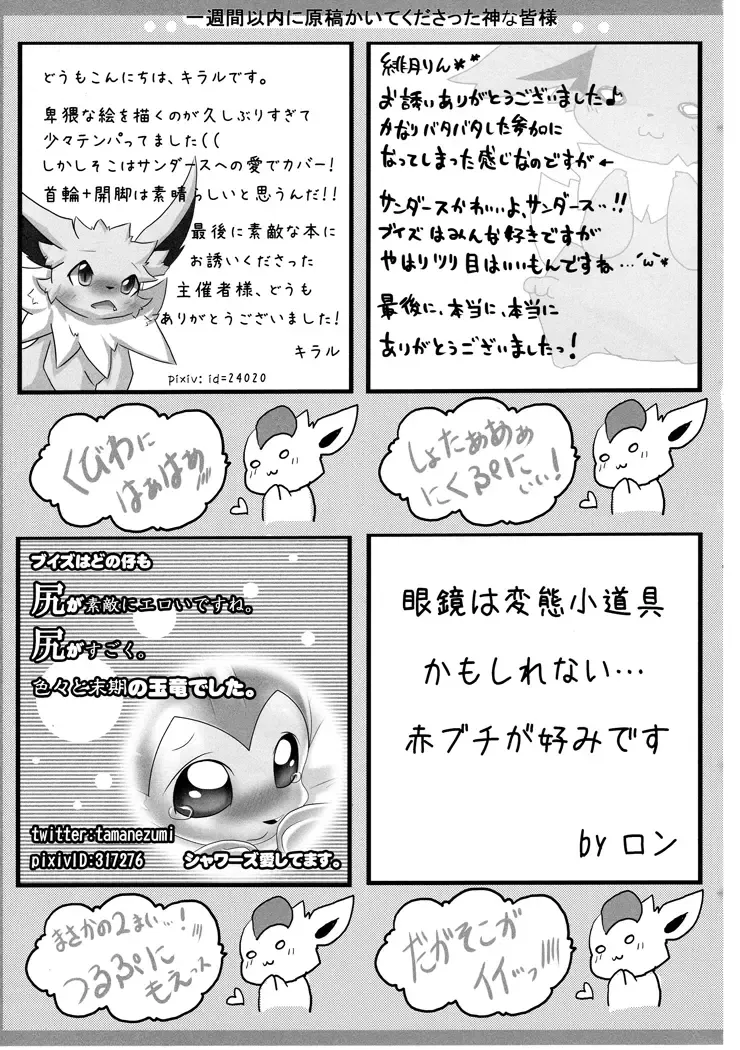 一週間以内に原稿かいてくださった神な皆様
どうもこんにちは、キラルです。
卑猥な絵を描くのが久しぶりすぎて
少々テンパってました((
しかしそこはサンダースへの愛でカバー!
首輪+開脚は素晴らしいと思うんだ!!
最後に素敵な本に
お誘いくださった
主催者様、どうも
ありがとうございました!
キラル
pixiv: id=24020
緋月りん**
お誘いありがとうございました♪
かなりバタバタした参加に
なってしまった感じなのですが←
サンダースかわいいよ、サンダース…!!
ブイズはみんな好きですが
やはりツリ目はいいもんですね…´ω`*
最後に、本当に、本当に
ありがとうございましたっ!
くびわに
はぁはぁ
しょたぁぁぁ
にくぷにぃぃ!
ブイズはどの仔も
尻が素敵にエロいですね。
尻がすごく。
色々と末期の玉竜でした。
twitter:tamanezumi
pixivID:317276
シャワーズ愛してます。
眼鏡は変態小道具
かもしれない…
赤ブチが好みです
by ロン
まさかの2まい…!
つるぷにに
もえっス
だがそこが
イイッっ!!!!